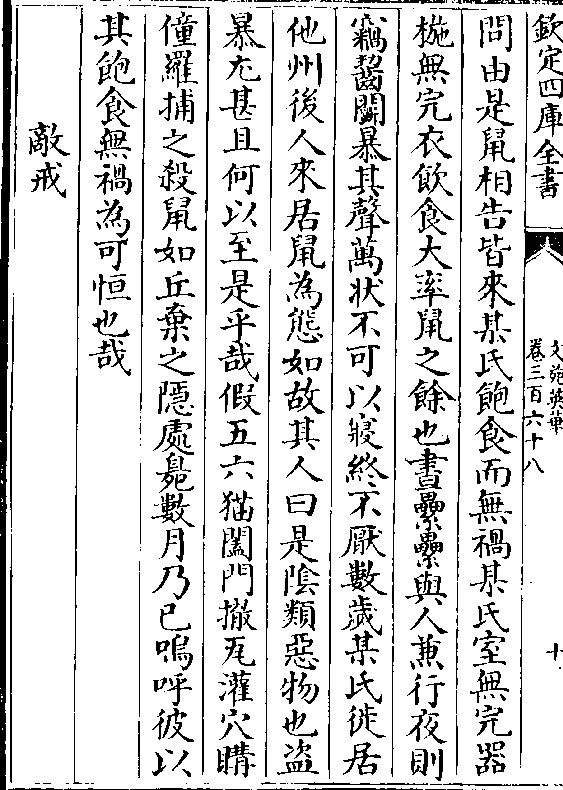 欽定四庫全書
文苑英華
卷三百六十八
十
問由是鼠相告皆來某氏飽食而無禍某氏室無完器
椸無完衣飲食大率鼠之餘也晝纍纍與人兼行夜則
竊齧鬭暴其聲萬状不可以寢終不厭數歲某氏徙居
他州後人來居鼠為態如故其人曰是陰類惡物也盗
暴尤甚且何以至是乎哉假五六猫闔門撤瓦灌穴購
僮羅捕之殺鼠如丘棄之隱處臭數月乃已嗚呼彼以
其飽食無禍為可恒也哉
敵戒